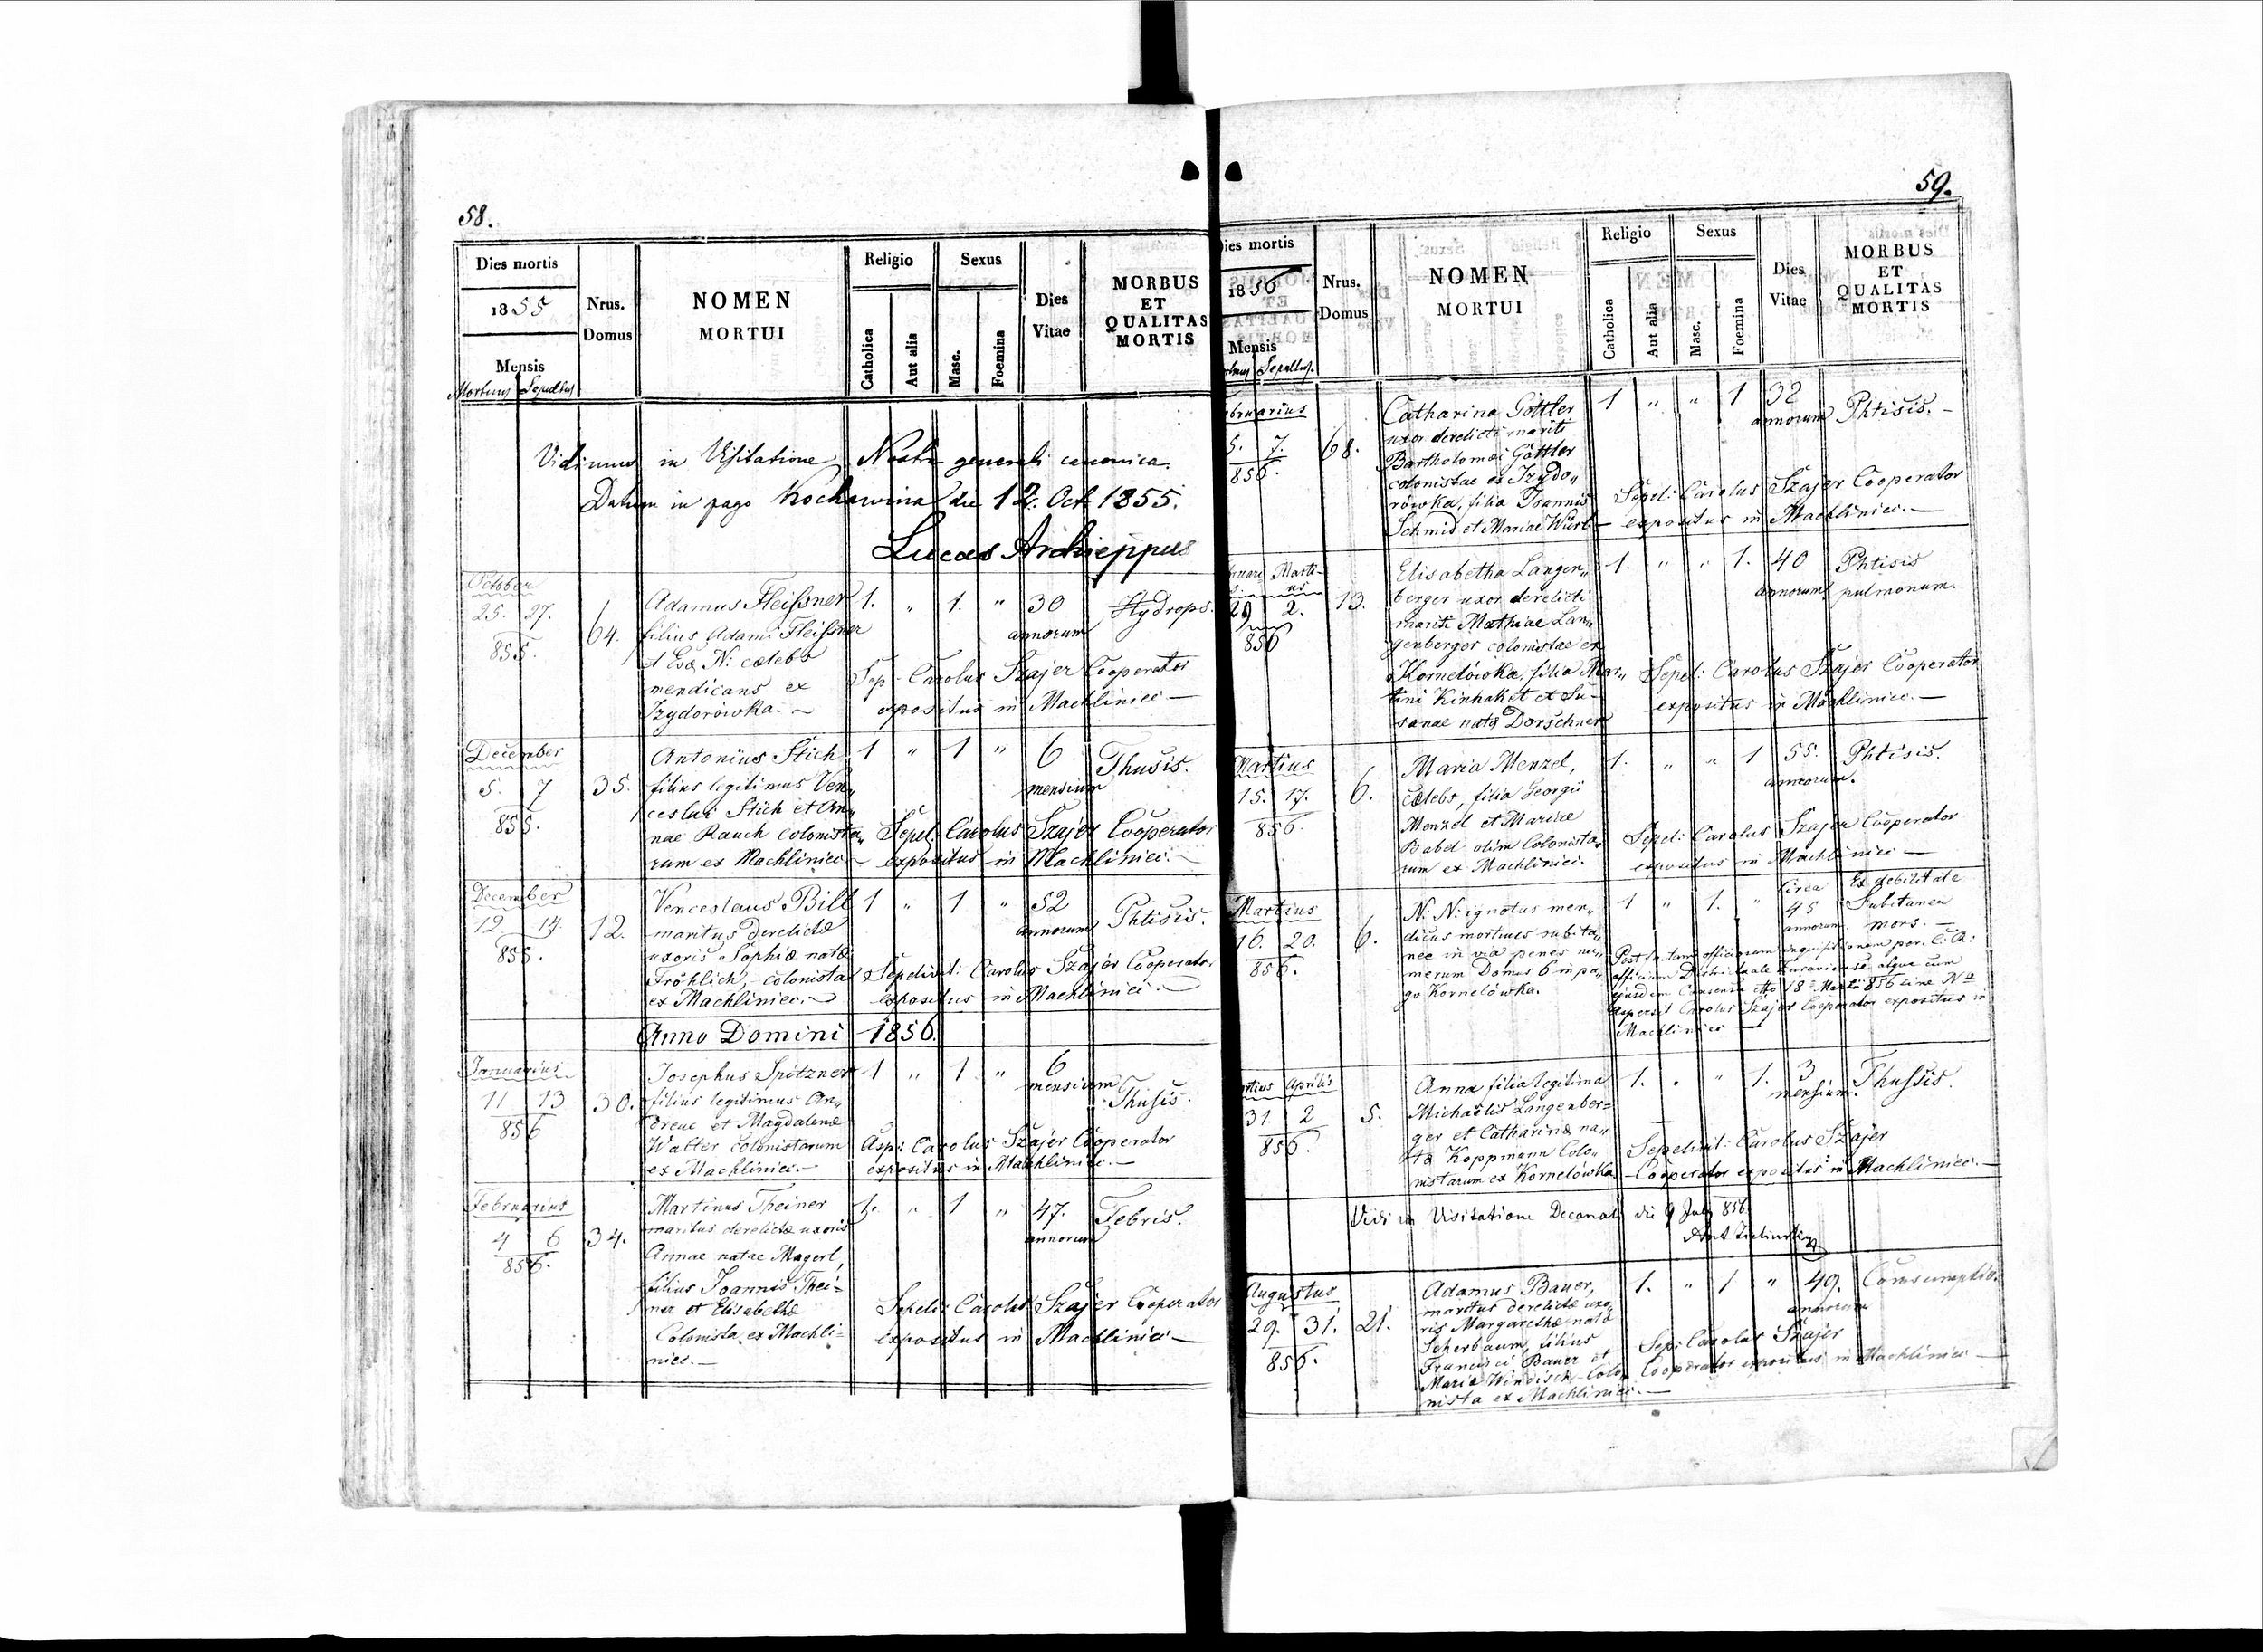 58.
Dies mortis
1855
Mensis
Mortuus Sepultus
Nrus.
Domus
NOMEN
MORTUI
Religio
Catholica
Aut alia
Sexus
Masc.
Foemina
Dies
Vitae
MORBUS
ET
QUALITAS
MORTIS
Vidimus in Visitatione Nostra generali canonica.
Datum in pago Kochawina die 12. Oct. 1855.
Lucas Archieppus
October
25. 27.
855.
64.
Adamus Fleißner
filius Adami Fleißner
et Evæ N: cælebs
mendicans ex
Izydorówka.
1. „ 1. „ 30
annorum
Hydrops.
Sep: Carolus Szajer Cooperator
expositus in Machliniec
December
5. 7
855.
35.
Antonius Stich
filius legitimus Ven„
ceslai Stich et An„
nae Rauch colonista„
rum ex Machliniec
1 „ 1 „ 6
mensium
Thusis.
Sepel: Carolus Szajer Cooperator
expositus in Machliniec.
December
12 14.
855.
12.
Venceslaus Bill
maritus derelictæ
uxoris Sophiæ natæ
Fröhlich, colonista
ex Machliniec.
1 „ 1 „ 52
annorum
Phtisis.
Sepelivit: Carolus Szajer Cooperator
expositus in Machliniec.
Anno Domini 1856.
Januarius
11 13
856
30.
Josephus Spitzner
filius legitimus An„
dreae et Magdalenæ
Walter colonistarum
ex Machliniec.
1 „ 1. „ 6
mensium
Thusis.
Asp: Carolus Szajer Cooperator
expositus in Machliniec.
Februarius
4 6
856.
34.
Martinus Theiner
maritus derelictæ uxoris
Annae natae Magerl,
filius Joannis Thei=
ner et Elisabethæ
Colonista ex Machli=
niec.
1. „ 1 „ 47.
annorum
Febris.
Sepeli: Carolus Szajer Cooperator
expositus in Machliniec
59.
Dies mortis
1856
Mensis
Sepultus.
Nrus.
Domus
NOMEN
MORTUI
Religio
Catholica
Aut alia
Sexus
Masc.
Foemina
Dies
Vitae
MORBUS
ET
QUALITAS
MORTIS
bruarius
5. 7.
856.
68.
Catharina Göttler
uxor derelicti mariti
Bartholomæi Göttler
colonistae ex Izydo„
rówka, filia Joannis
Schmid et Mariae
1 „ „ 1 32
annorum
Phtisis.
Sepel: Carolus Szajer Cooperator
expositus in Machliniec.
Marti-
us
29 2.
856
13.
Elisabetha Langen„
berger uxor derelicti
mariti Mathiae Lan„
genberger colonistae ex
Kornelówka, filia Mar„
tini Kinhaket et Su-
sanae natæ Dorschner
1. „ „ 1. 40
annorum
Phtisis
pulmonum.
Sepel: Carolus Szajer Cooperator
expositus in Machliniec.
Martius
15. 17.
856.
6.
Maria Menzel,
cælebs, filia Georgii
Menzel et Mariae
Babel olim Colonista„
rum ex Machliniec.
1. „ „ 1 55.
annorum.
Phtisis.
Sepel: Carolus Szajer Cooperator
expositus in Machliniec
Martius
16. 20.
856.
6.
N: N: ignotus men„
dicus mortuus subita„
nee in via penes nu„
merum Domus 6 in pa„
go Kornelówka.
1 „ 1. „ circa
45
annorum.
Ex debilitate
Subitanea
mors.
officium Districtuale atque cum
18 Martii 856
Carolus Szajer Cooperator expositus in
Machliniec
rtius Aprilis
31. 2
856.
5.
Anna filia legitima
Michaëlis Langenber=
ger et Catharinæ na„
tæ Koppmann Colo„
nistarum ex Kornelówka
1. „ „ 1. 3
mensium.
Thussis.
Sepelivit: Carolus Szajer
Cooperator expositus in Machliniec.
Vidi in Visitatione Decanali die 9 July 856.
Augustus
29. 31.
856.
21.
Adamus Bauer,
maritus derelictæ uxo„
ris Margarethæ natæ
Scherbaum, filius
Francisci Bauer et
Mariæ Windisch Colo„
nista ex Machliniec.
1. „ 1 „ 49.
annorum
Consumptio.
Sep: Carolus Szajer
Cooperator expositus in Machliniec